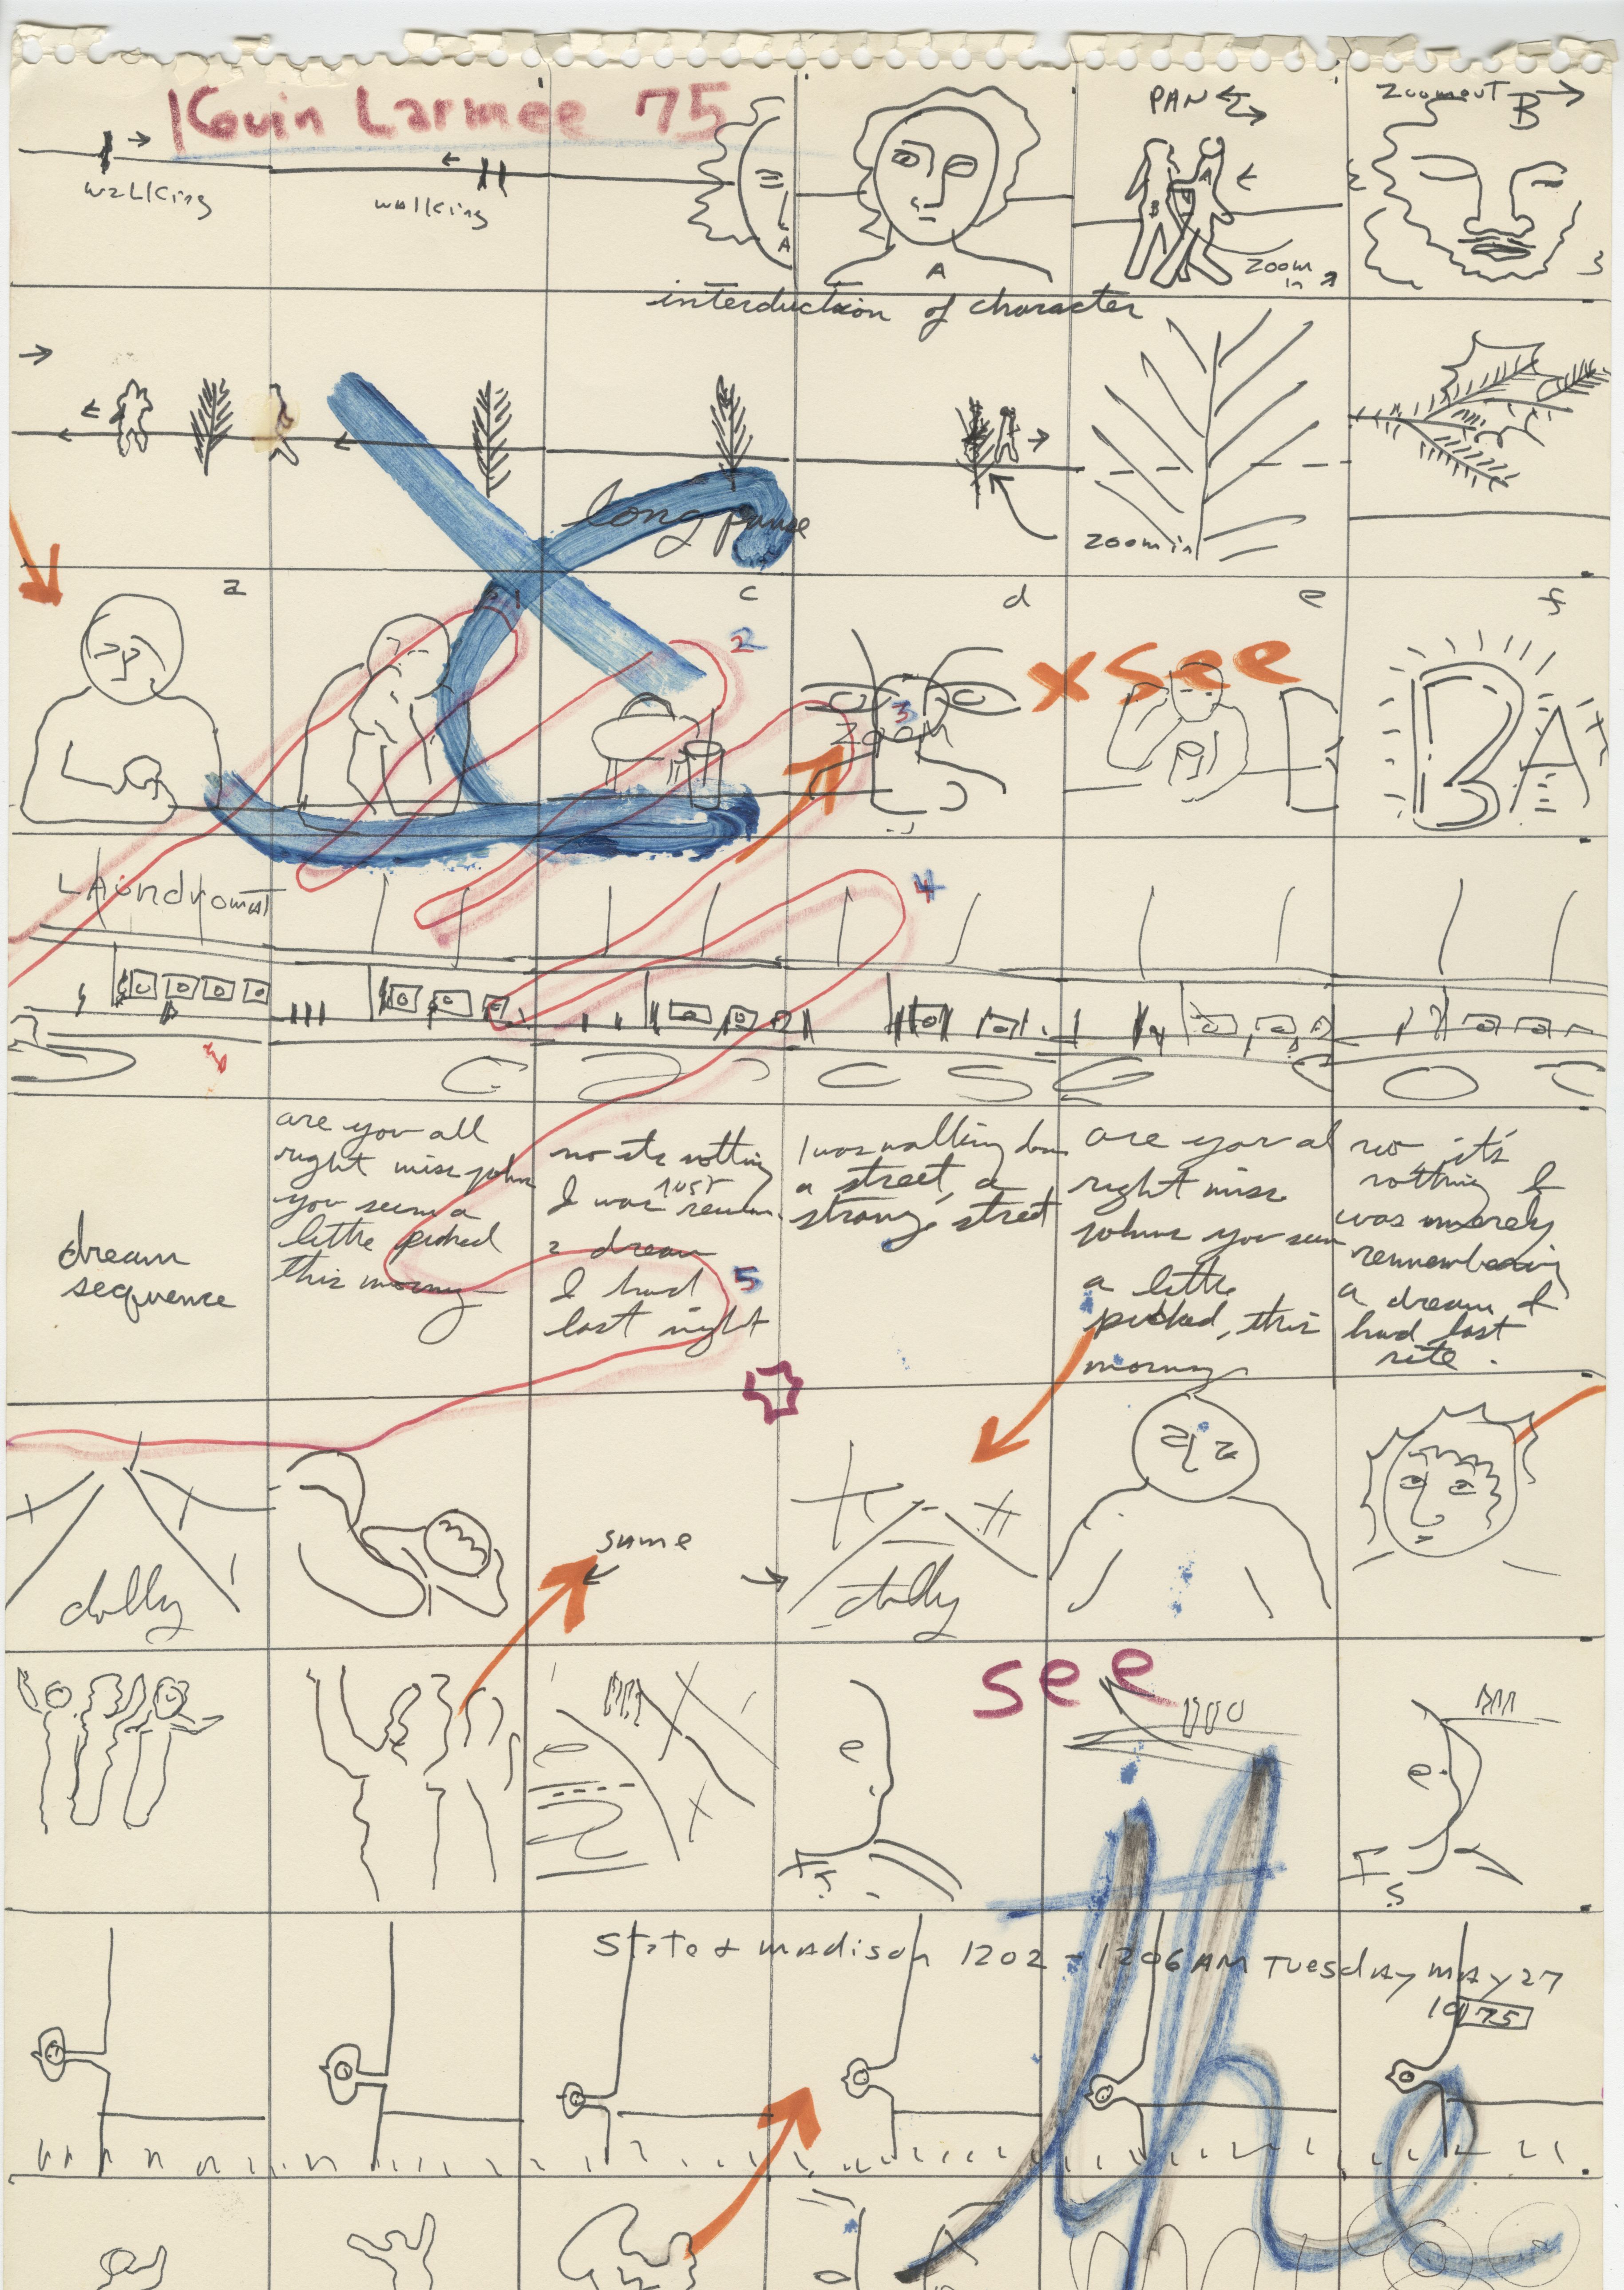 Kevin Larmee 75
PAN
zoomout B
walking
walking
A
A
B
A
zoom
in
3
interduction of character
long pause
zoom in
a
c
d
e
f
1
2
3
zoom
x see
BA
Laundromat
4
are you all
right miss johns
you seem a
little peiked
this morning
no its nothing
I was just remem
a dream
I had
last night
5
I was walking down
a street, a
strange street
are you al
right miss
johns you seem
a little
peicked, this
morning
no it's
nothing I
was merely
remembering
a dream I
had last
nite.
dream
sequence
dolly
same
dolly
see
the
State & madison 1202 - 1206 AM Tuesday may 27
1975